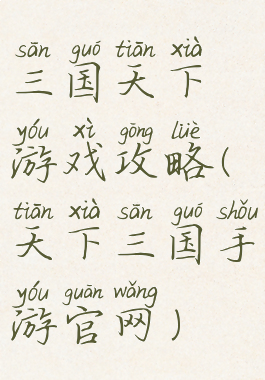 sān guó tiān xià
三国天下
yóu xì gōng lüè
游戏攻略(
tiān xià sān guó shǒu
天下三国手
yóu guān wǎng
游官网)